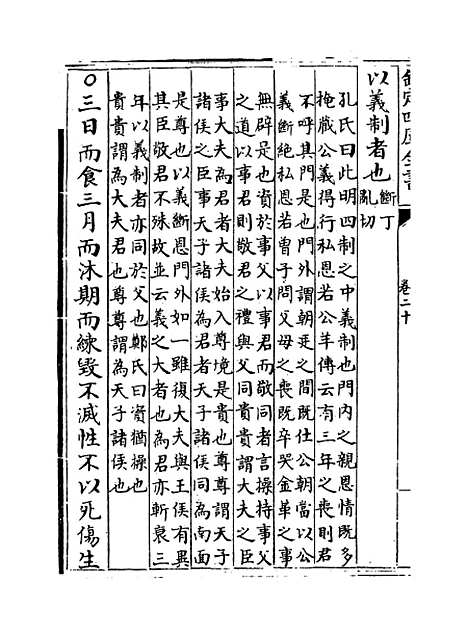 欽定四庫全書
卷二十
以義制者也
斷丁
亂切
孔氏曰此明四制之中義制也門內之親恩情既多
掩蔵公義得行私恩若公羊傳云有三年之喪則君
不呼其門是也門外謂朝廷之間既仕公朝當以公
義斷絶私恩若曾子問父母之喪既卒哭金革之事
無辟是也資於事父以事君而敬同者言操持事父
之道以事君則敬君之禮與父同貴貴謂大夫之臣
事大夫為君者大夫始入尊境是貴也尊尊謂天子
諸侯之臣事天子諸侯為君者天子諸侯同為南面
是尊也以義斷恩門外如一雖復大夫與王侯有異
其臣敬君不殊故並云義之大者也為君亦斬衰三
年以義制者亦同於父也鄭氏曰資猶操也
貴貴謂為大夫君也尊尊謂為天子諸侯也
○三日而食三月而沐期而練毀不滅性不以死傷生